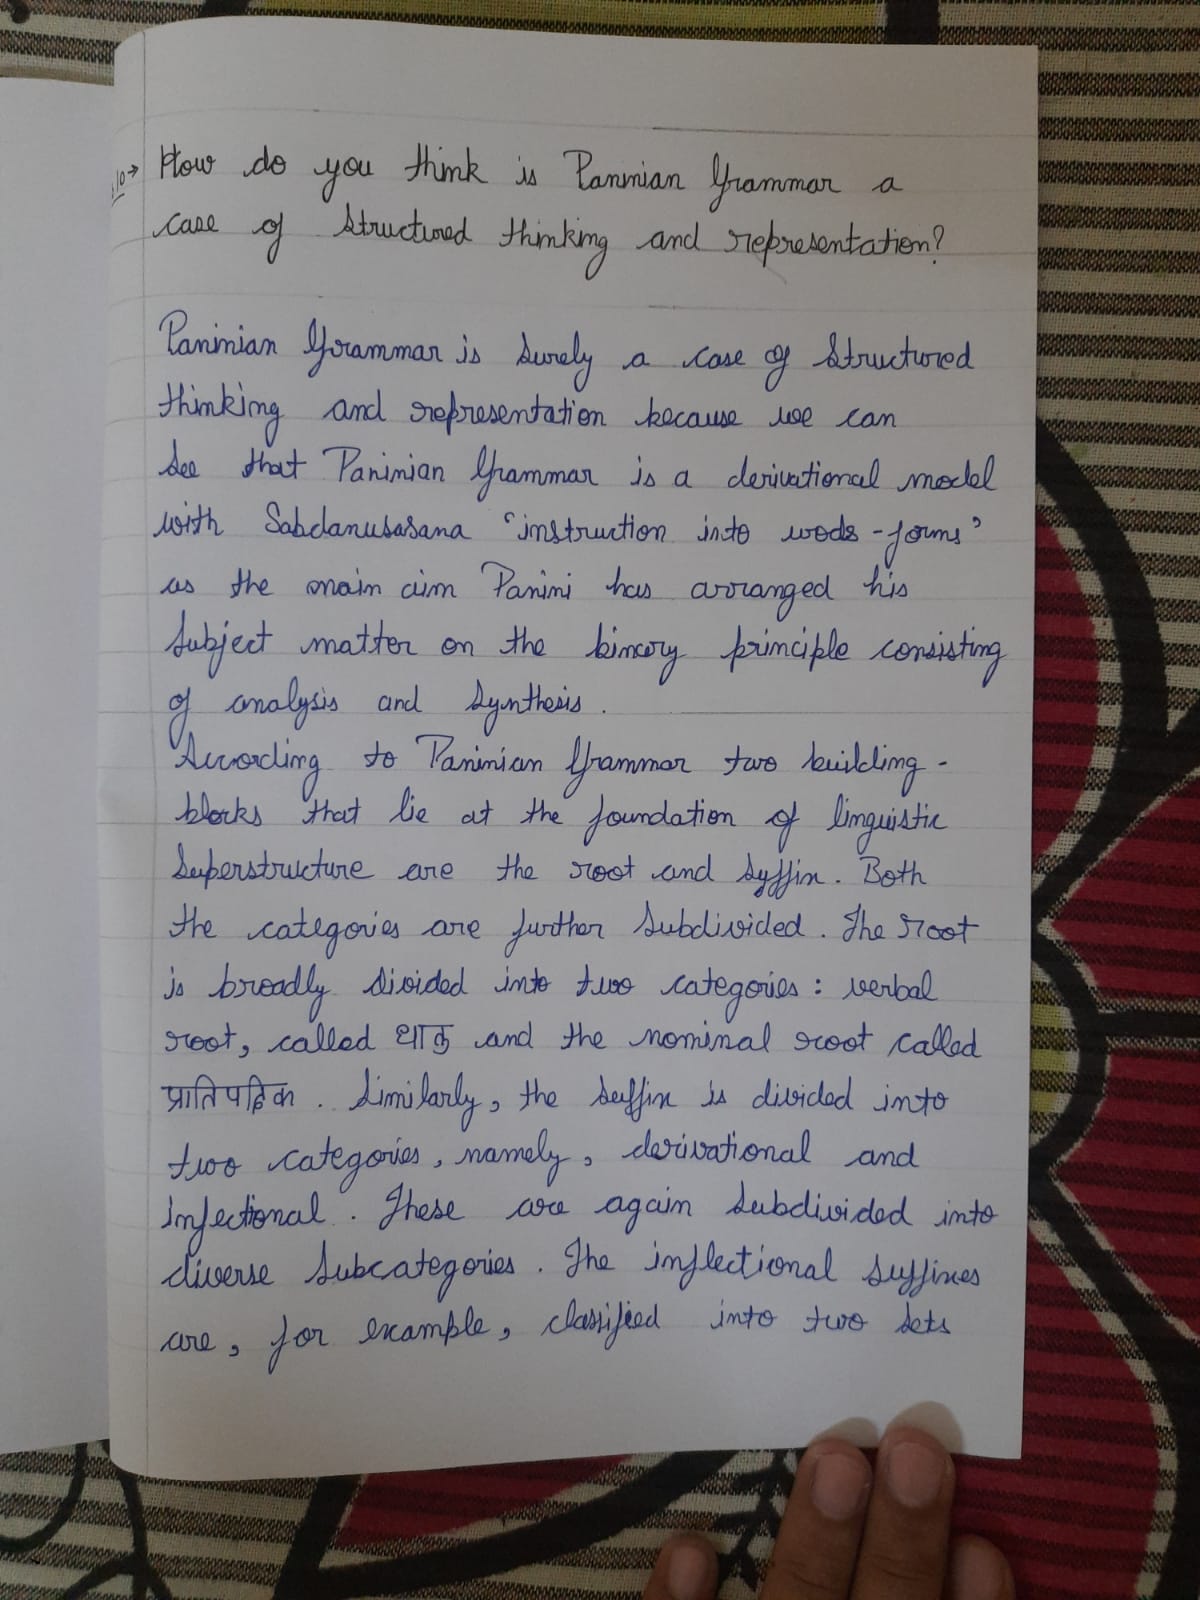 10→ How do you think is Paninian Grammar a
case of structured thinking and representation?
Paninian Grammar is surely a case of structured
thinking and representation because we can
see that Paninian Grammar is a derivational model
with Sabdanusasana "instruction into wods-forms"
as the main aim Panini has arranged his
subject matter on the binary principle consisting
of analysis and synthesis.
According to Paninian Grammar two building-
blocks that lie at the foundation of linguistic
superstructure are the root and syffix. Both
the categories are further subdivided. The root
is broadly divided into two categories: verbal
root, called धातु and the nominal root called
प्रातिपदिक. Similarly, the suffix is divided into
two categories, namely, derivational and
infectional. These are again subdivided into
diverse subcategories. The inflectional suffixes
are, for example, classified into two sets